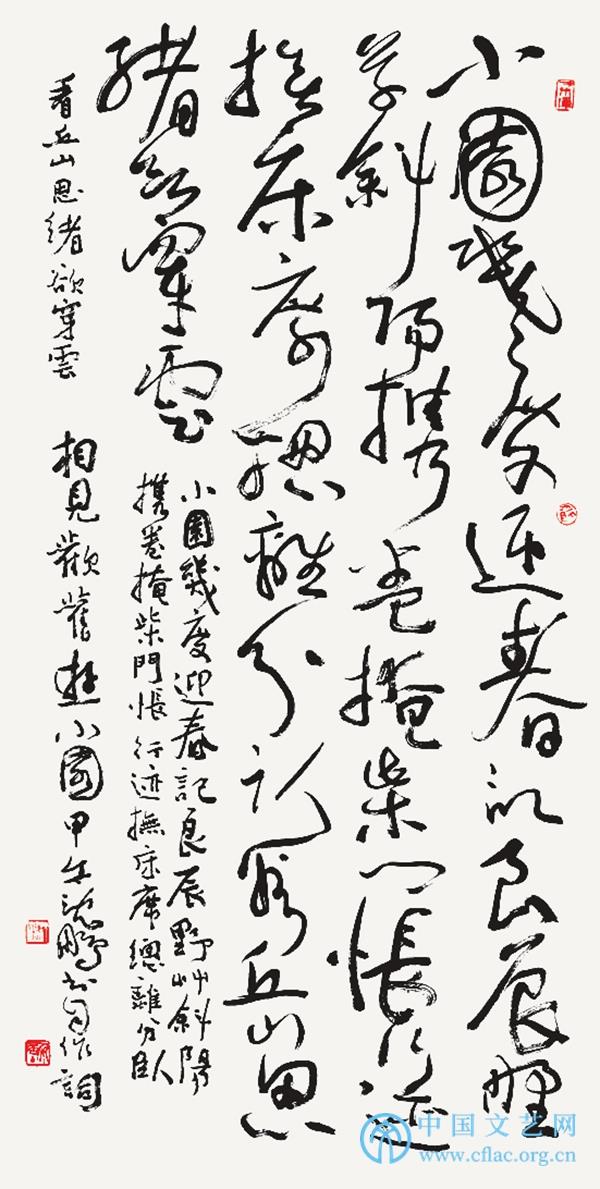 小園幾度迎春記良辰野
草斜陽携卷掩柴門悵行迹
撫床席總離分臥看丘山思
緒欲穿雲
小園幾度迎春記良辰野艸斜陽
携卷掩柴門悵行迹撫床席總離分臥
看丘山思緒欲穿雲 相見歡舊遊小園甲午沈鵬書自作詞
中国文艺网
www.cflac.org.cn